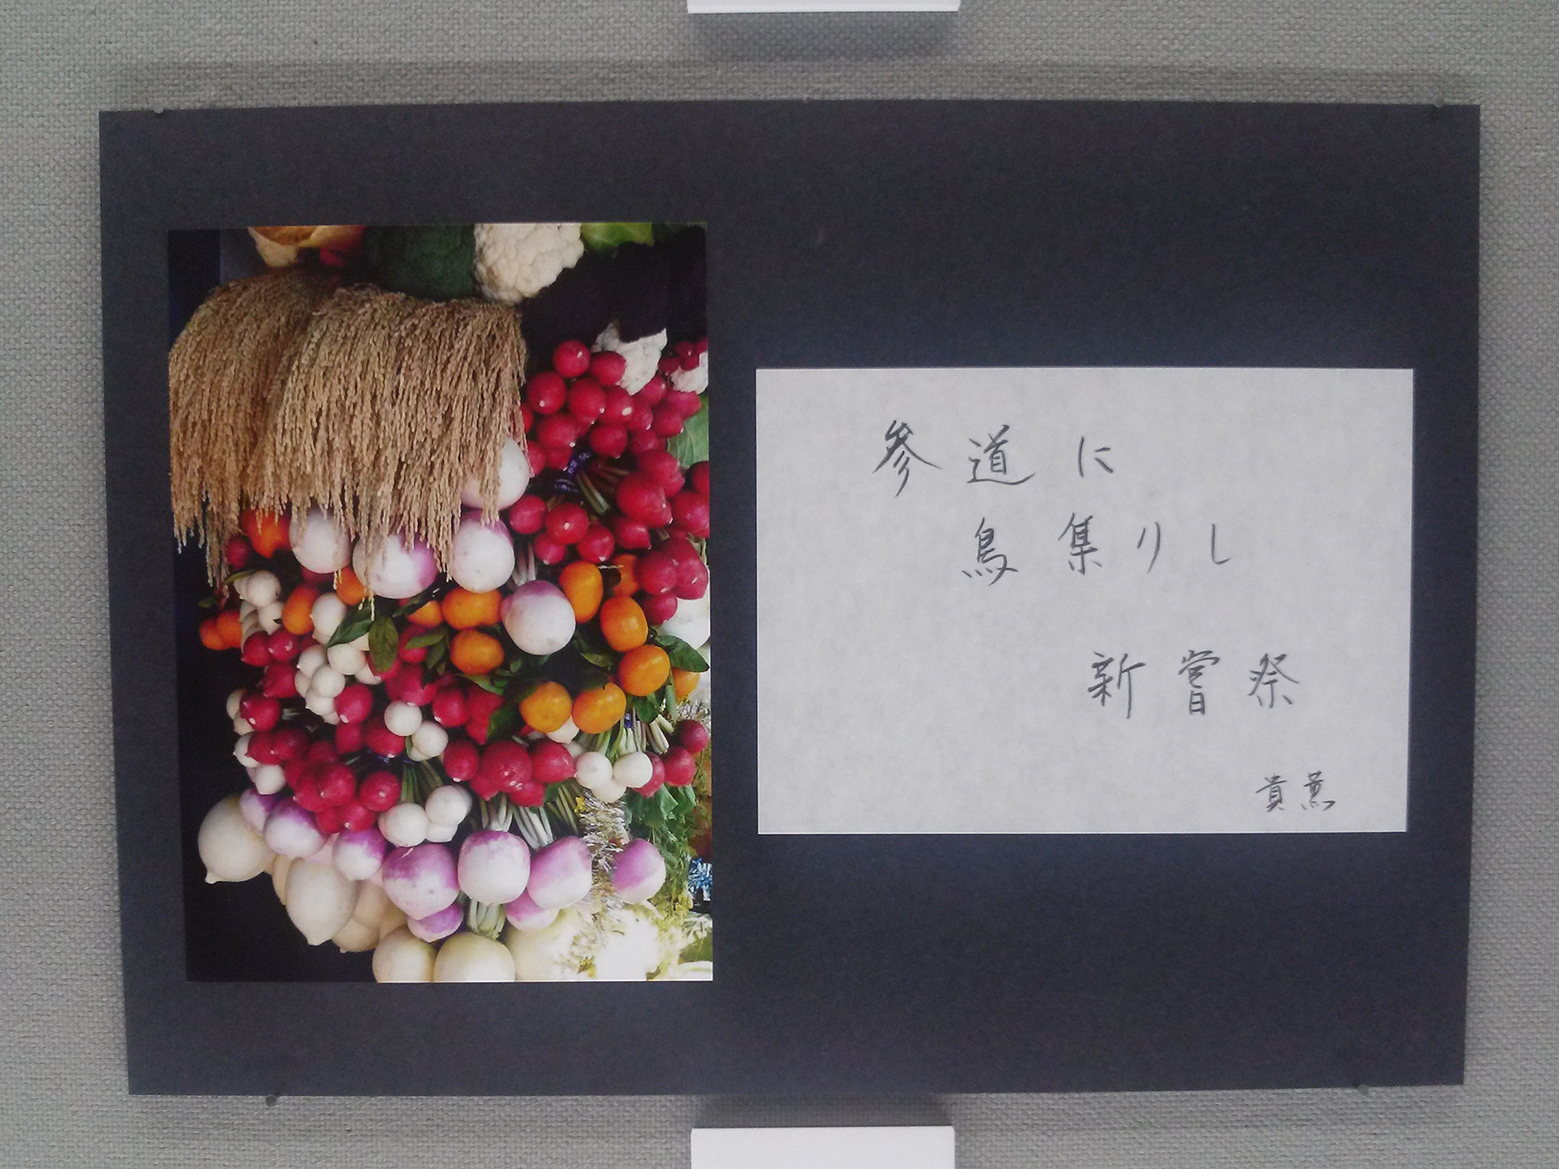 参道に
鳥集りし
新嘗祭